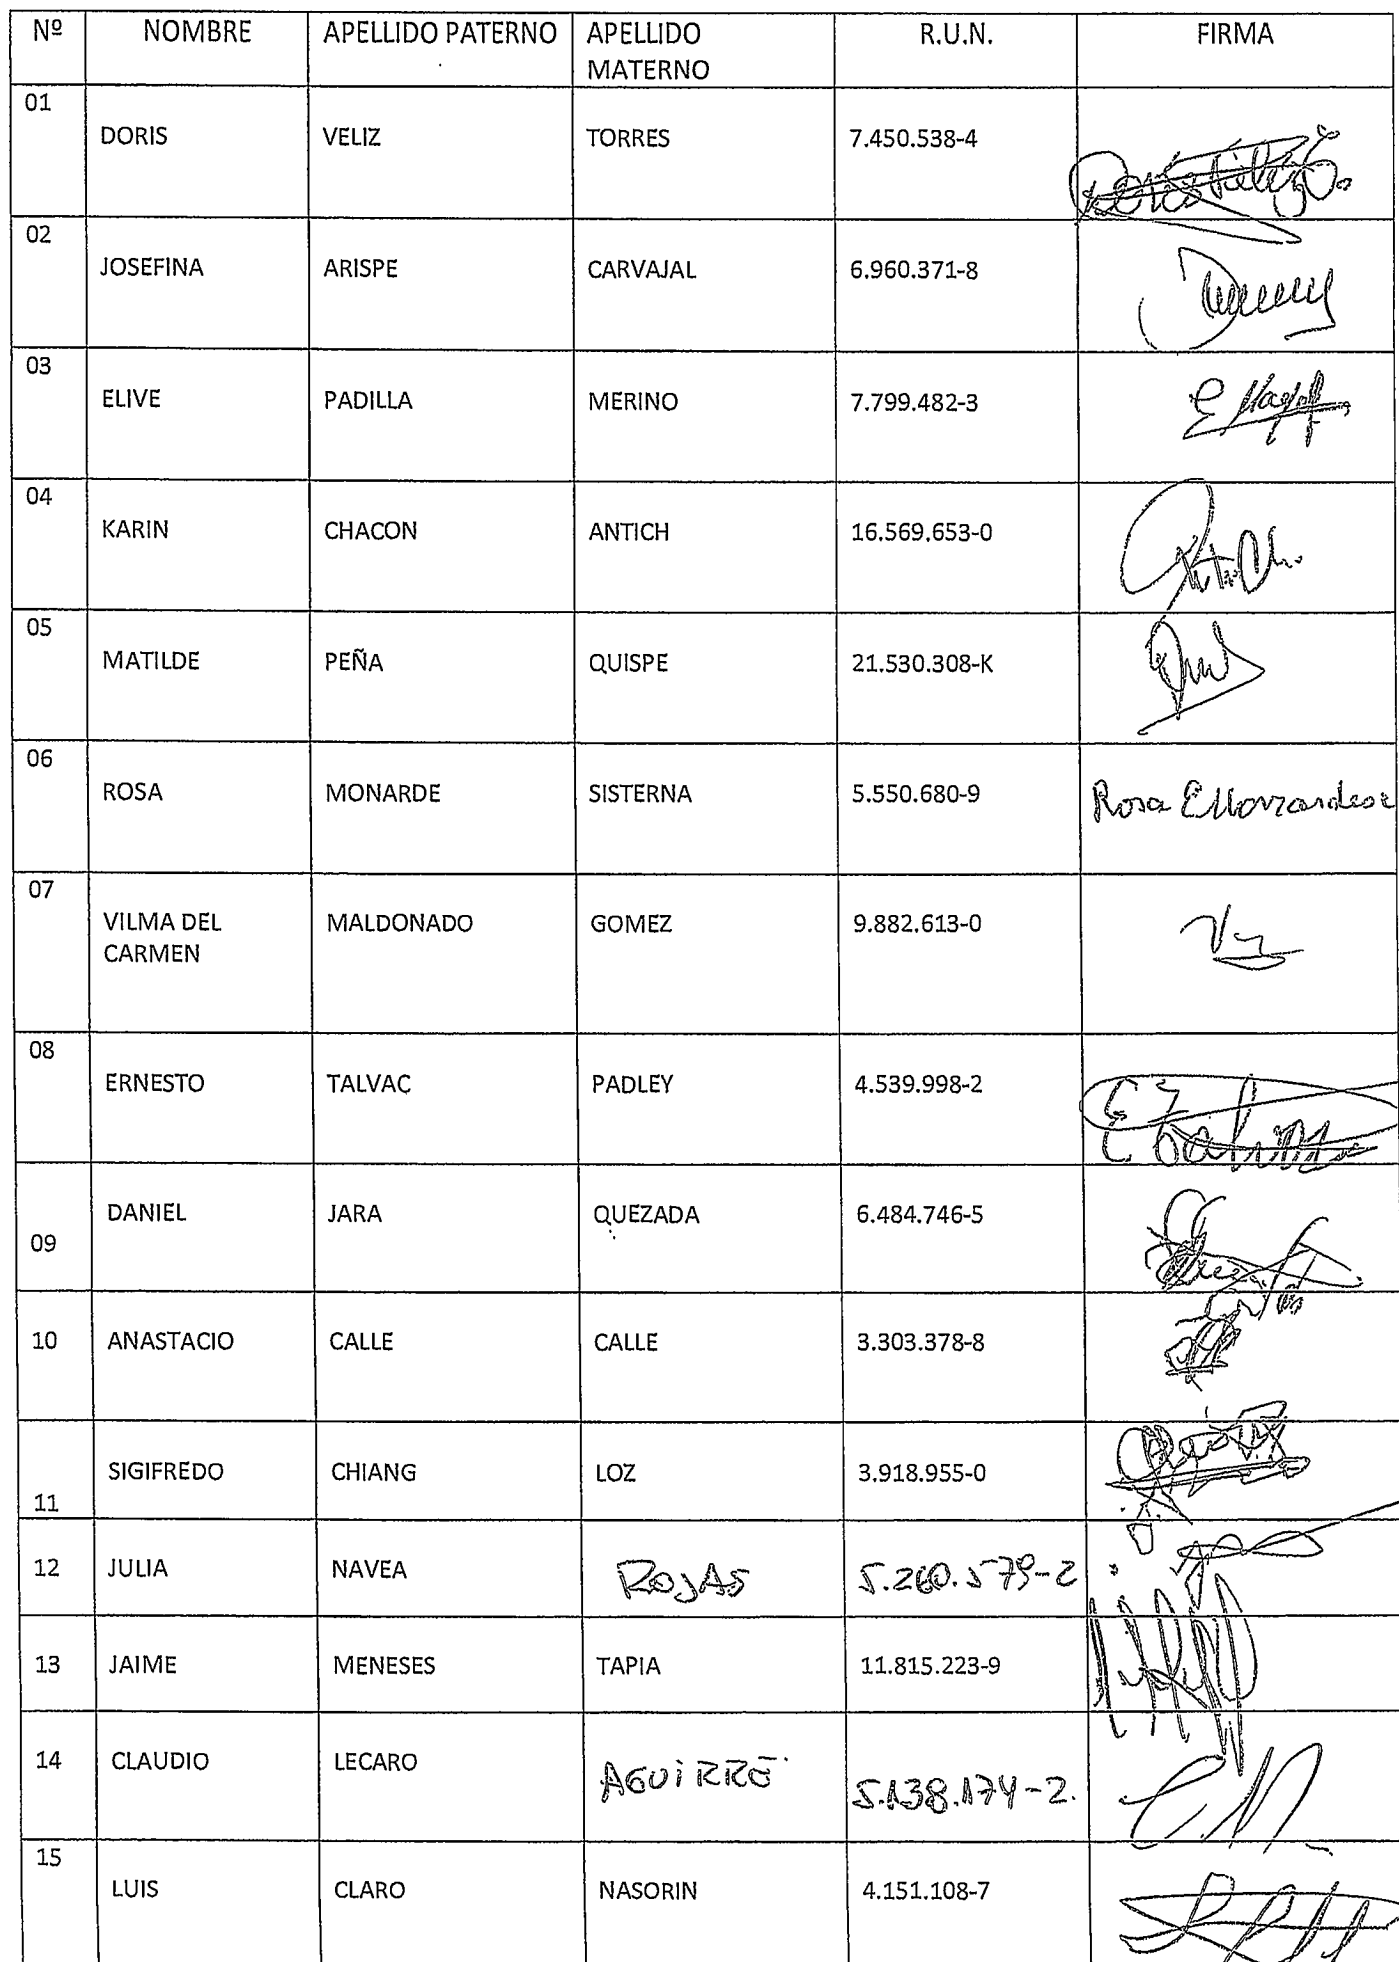 Nº NOMBRE APELLIDO PATERNO APELLIDO MATERNO R.U.N. FIRMA
01 DORIS VELIZ TORRES 7.450.538-4
02 JOSEFINA ARISPE CARVAJAL 6.960.371-8
03 ELIVE PADILLA MERINO 7.799.482-3
04 KARIN CHACON ANTICH 16.569.653-0
05 MATILDE PEÑA QUISPE 21.530.308-K
06 ROSA MONARDE SISTERNA 5.550.680-9 Rosa
07 VILMA DEL CARMEN MALDONADO GOMEZ 9.882.613-0
08 ERNESTO TALVAC PADLEY 4.539.998-2
09 DANIEL JARA QUEZADA 6.484.746-5
10 ANASTACIO CALLE CALLE 3.303.378-8
11 SIGIFREDO CHIANG LOZ 3.918.955-0
12 JULIA NAVEA ROJAS 5.260.579-2
13 JAIME MENESES TAPIA 11.815.223-9
14 CLAUDIO LECARO AGUIRRE 5.138.174-2.
15 LUIS CLARO NASORIN 4.151.108-7